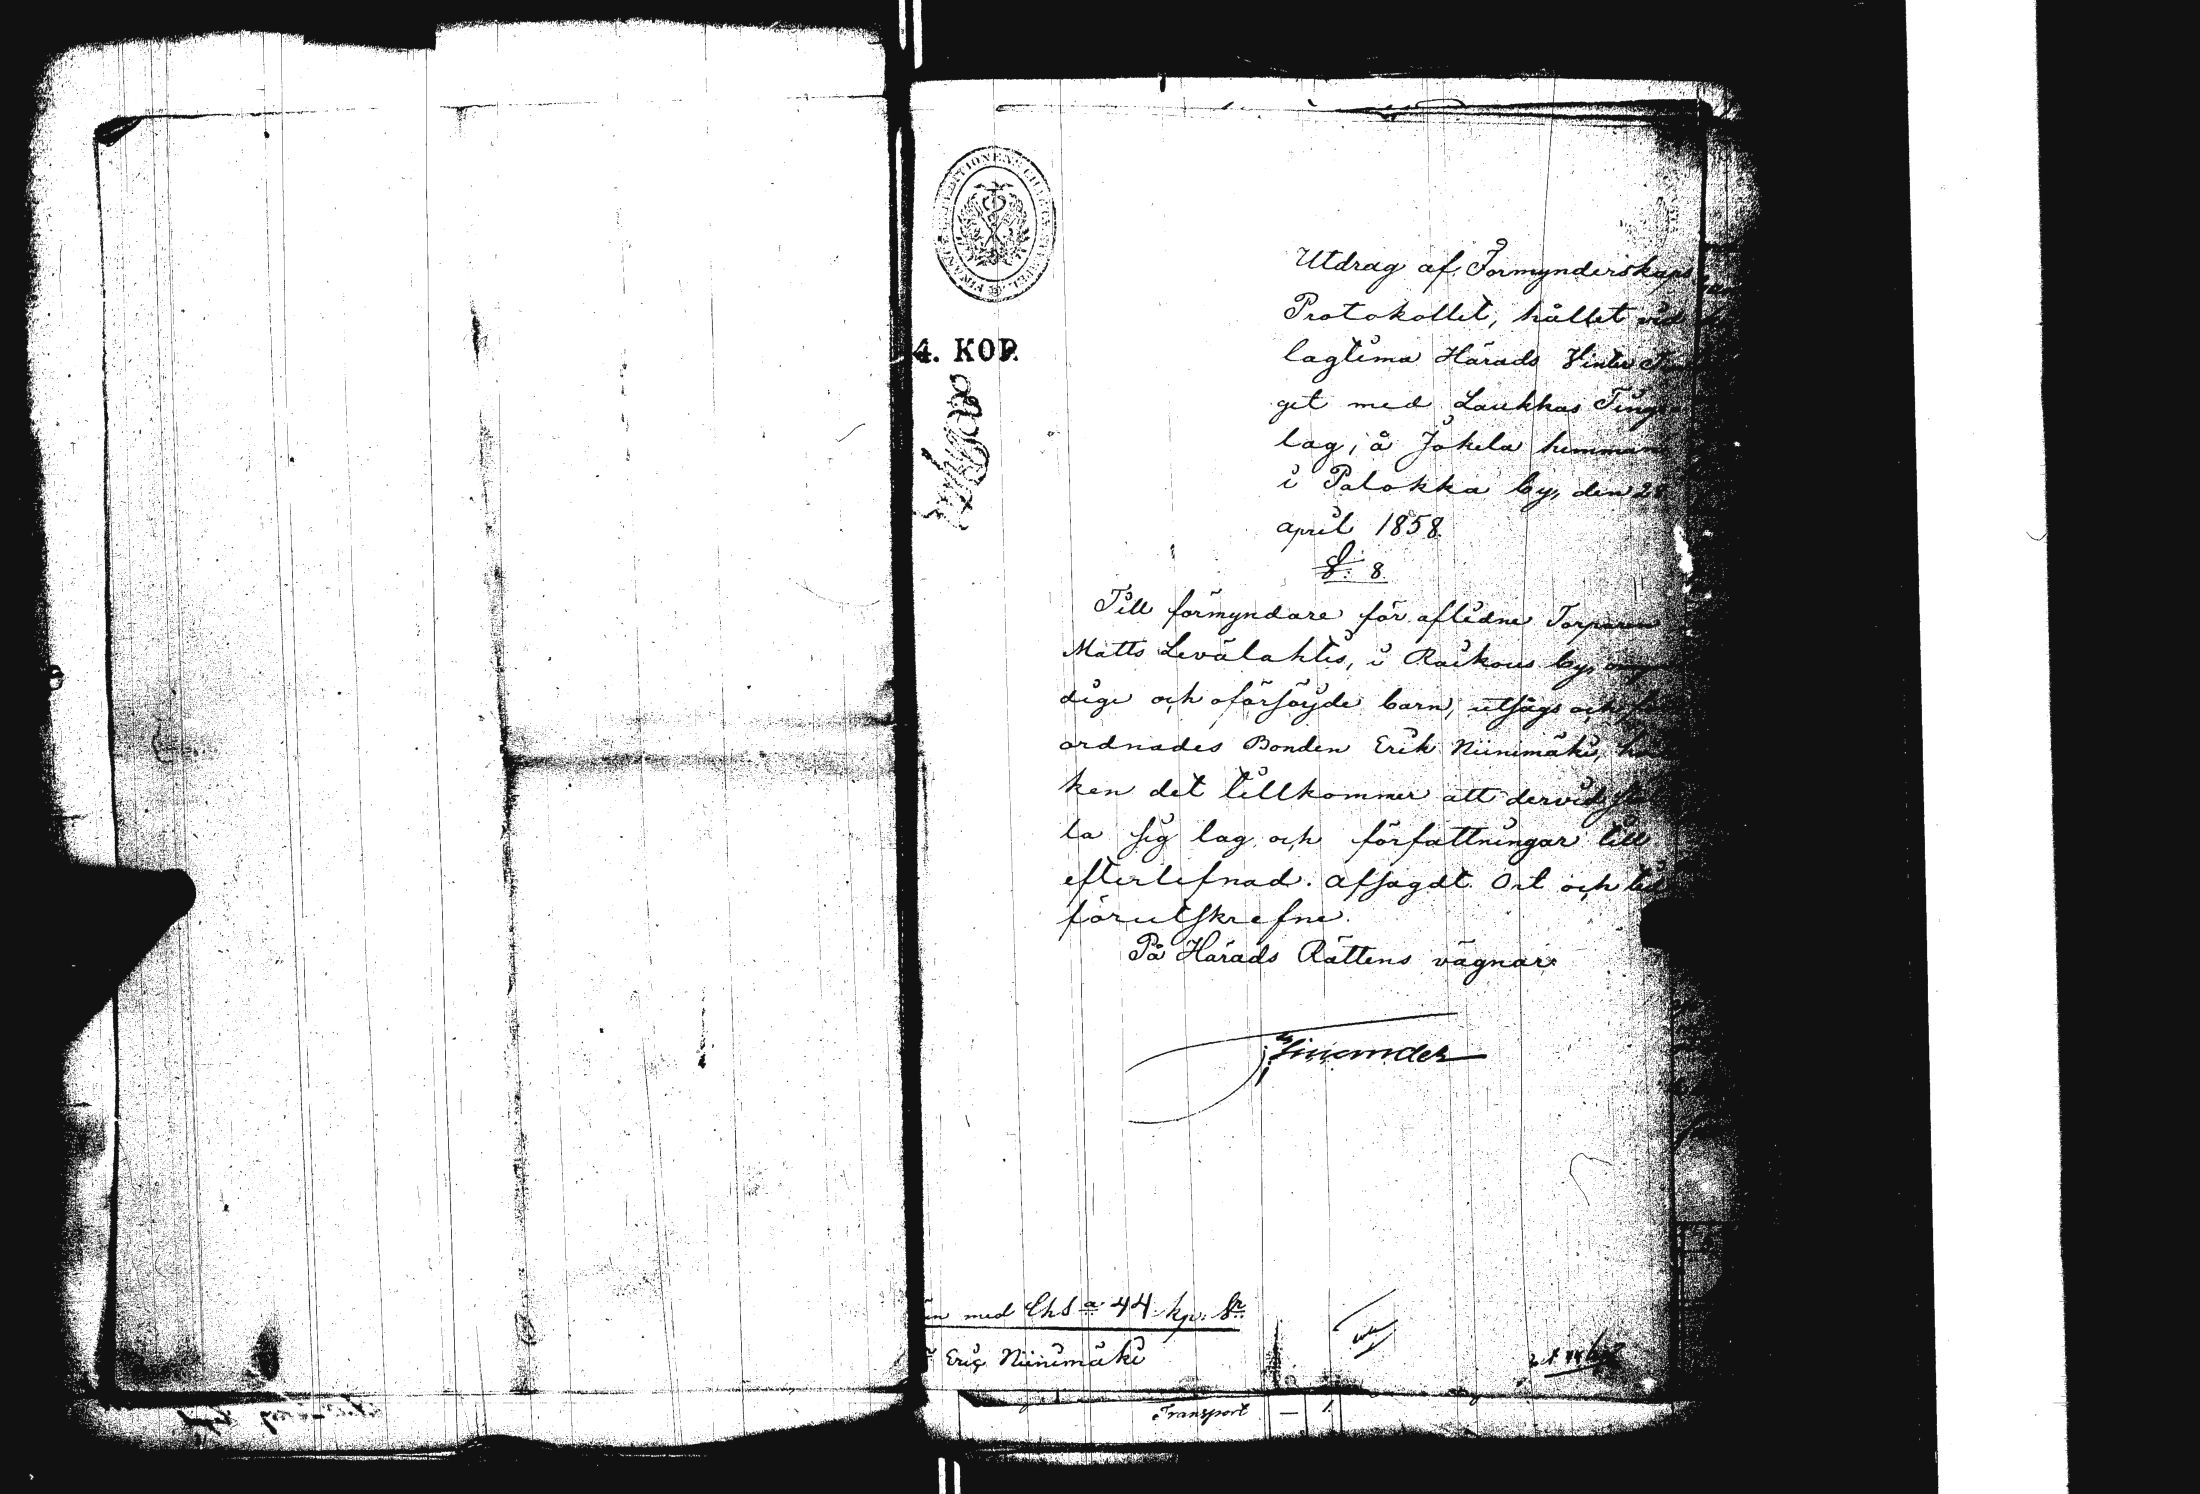 4. KOP.
Utdrag af Förmynderskaps
Protokollet, hållet vid
lagtima Härads Vinter Tin
get med Laukkas Tings
lag, å Jokela hemman
i Palokka by, den 28
april 1858.
§: 8.
Till förmyndare för aflidne Torparen
Matts Levälahtis, i Raikous by,
dige och oförsöijde barn, utsågs och
ordnades Bonden Erik Niinimäki,
ken det tillkommer att dervid
la sig lag och författningar till
efterlefnad. Afsagdt. Ort och
förutskrefne.
På Härads Rättens vägnar:
med Chs a 44 kp: Sr
Eriç Niinimäki
Transport — 1.